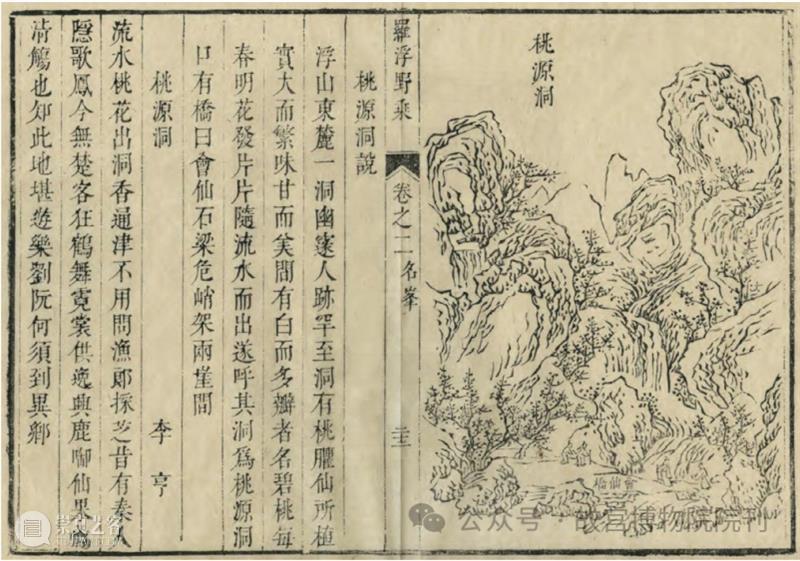 桃源洞
會仙橋
羅浮野乘 卷之二 名峯
桃源洞說
浮山東麓一洞幽邃人跡罕至洞有桃臞仙所植
實大而繁味甘而美間有白而多瓣者名碧桃每
春明花發片片隨流水而出遂呼其洞爲桃源洞
口有橋曰會仙石梁危峭架兩崖間
桃源洞 李亨
流水桃花出洞香通津不用問漁郎採芝昔有秦人
隱歌鳳今無楚客狂鶴舞霓裳供逸興鹿啣仙果薦
清觴也知此地堪遊樂劉阮何須到異鄉
公众号·故宫博物院院刊
崇真艺客